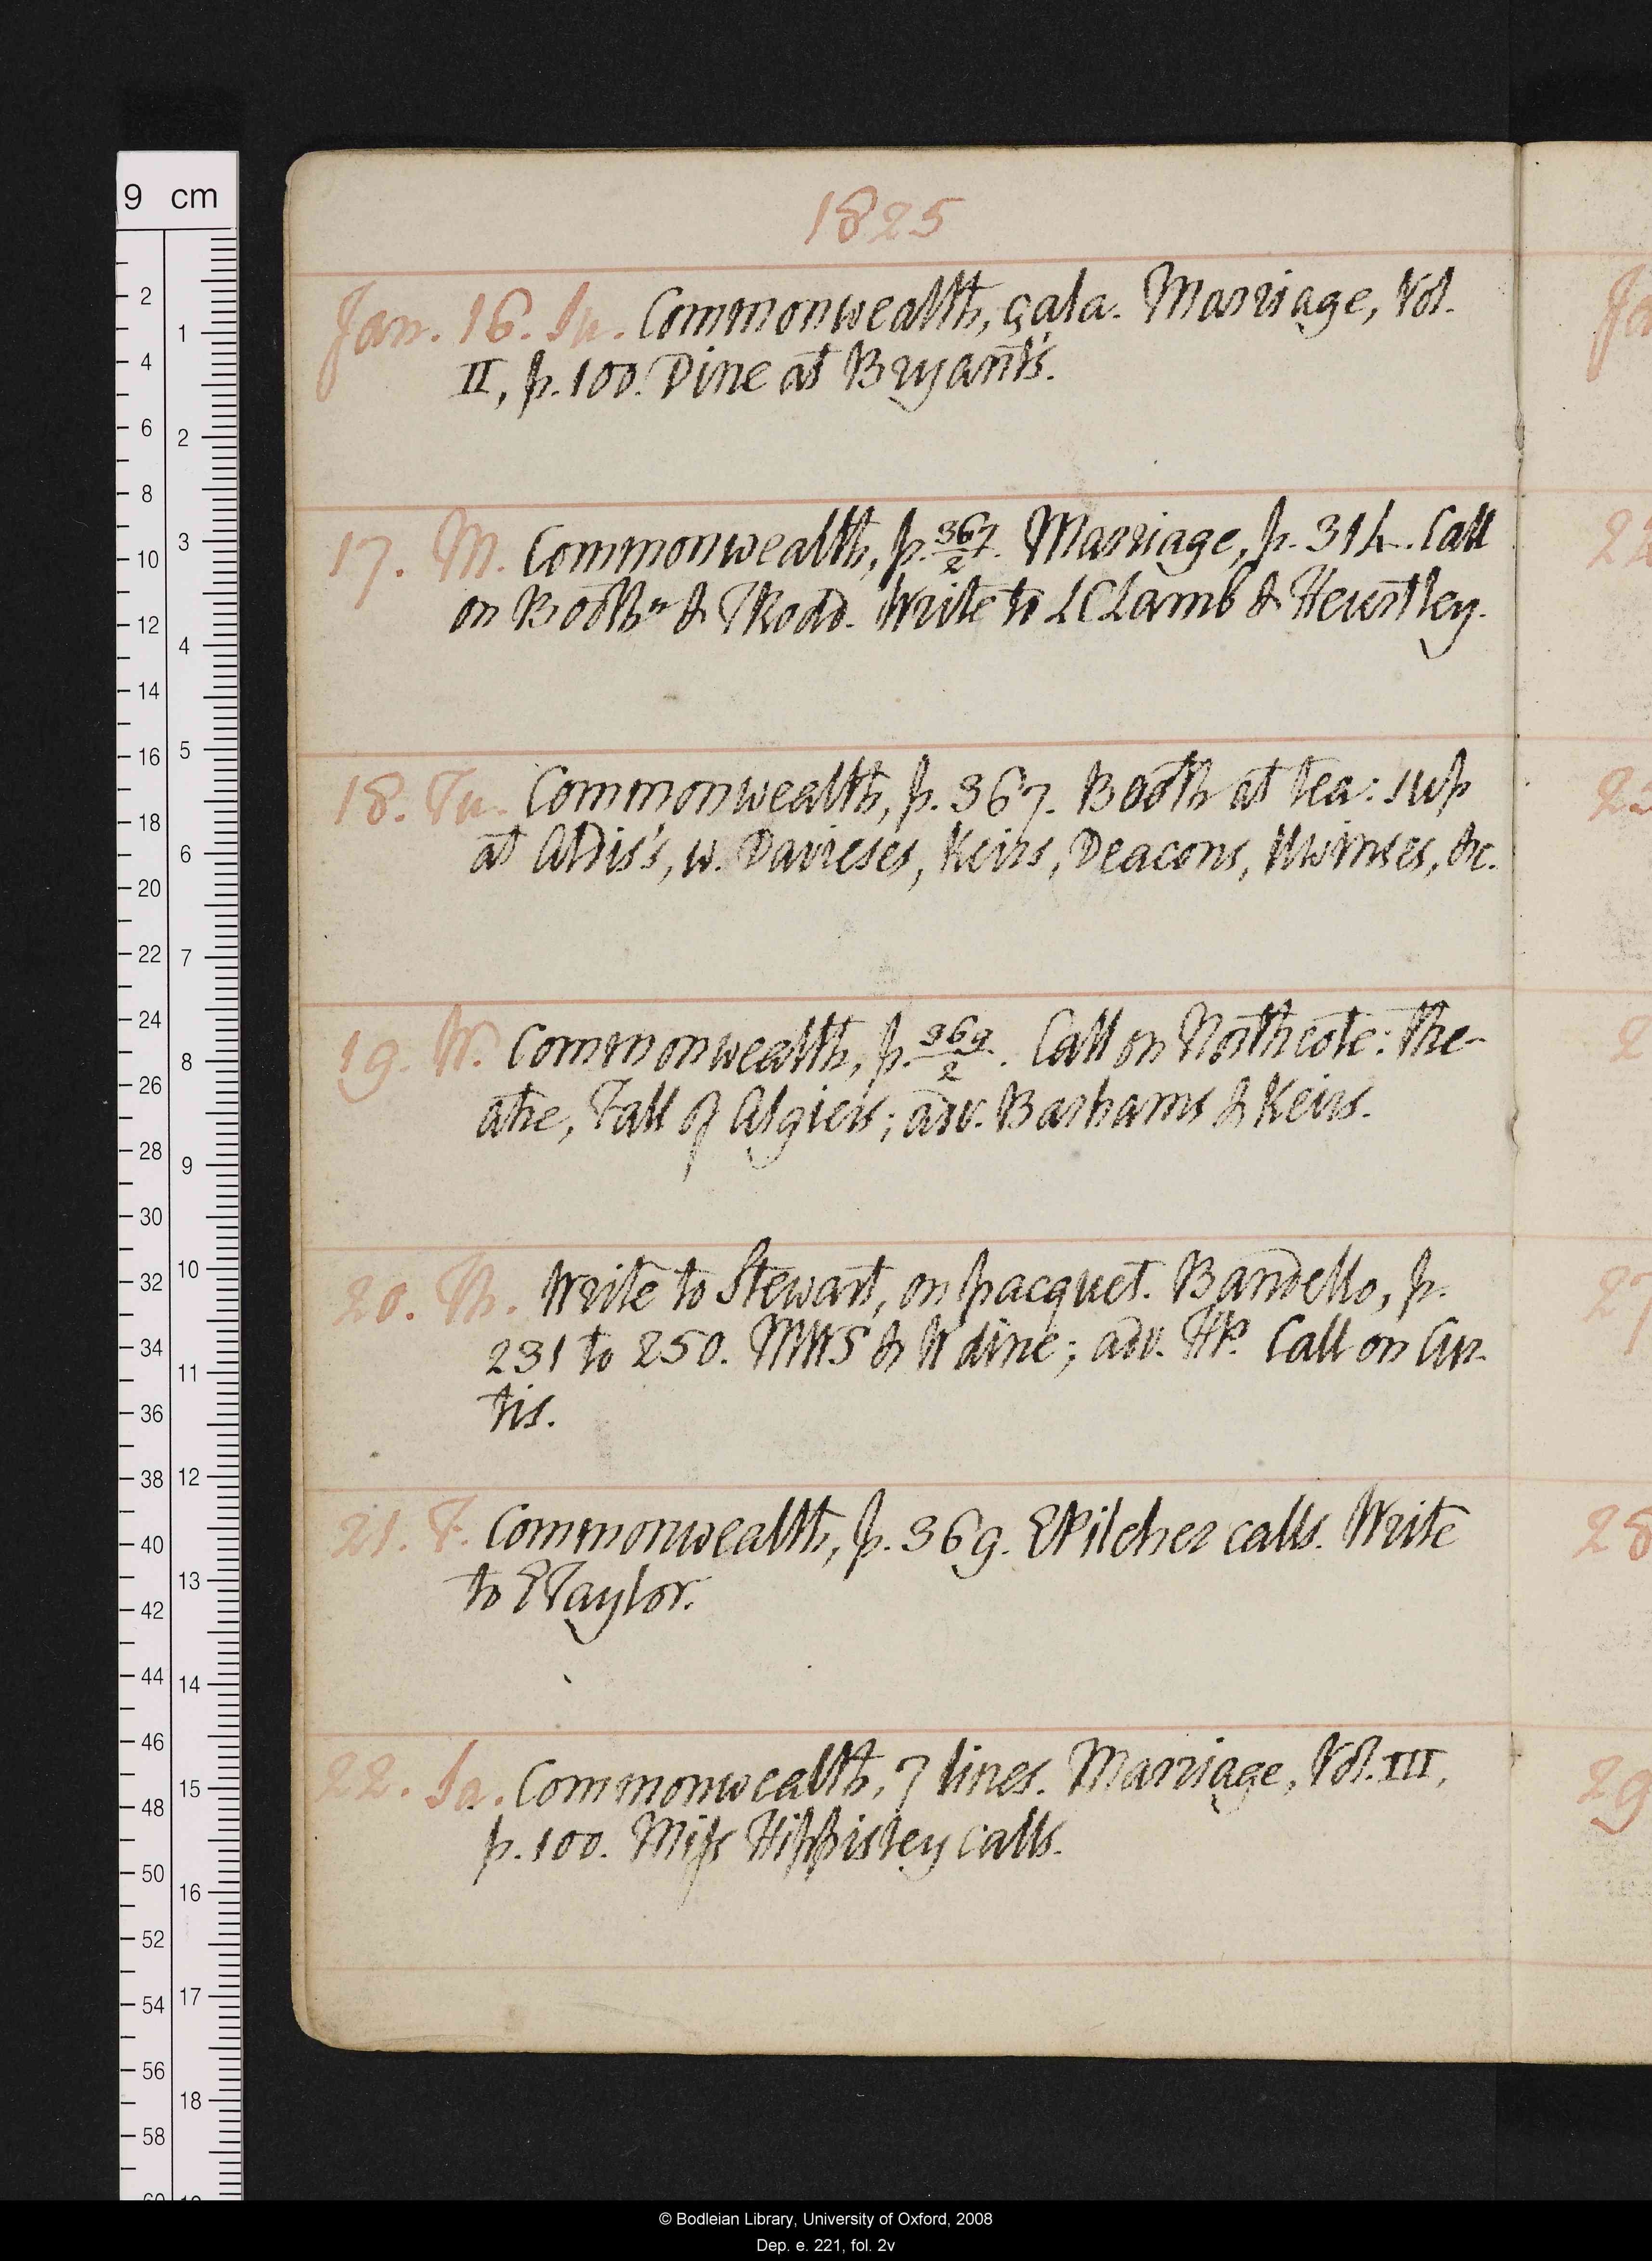 1825
Jan. 16. Su. Commonwealth, gala. Marriage, Vol.
II, p. 100. Dine at Bryant's.
17. M. Commonwealth, p. 367/2. Marriage, p. 314. Call
on Boothn & TRodd. Write to LCLamb & Heustley.
18. Tu. Commonwealth, p. 367. Booth at tea: sup
at Aldis's, w. Davieses, Keirs, Deacons, Uwinses, &c.
19. W. Commonwealth, p. 369/2. Call on Northcote: The-
atre, Fall of Algiers; adv. Barhams & Keirs.
20. Th. Write to Stewart, on pacquet. Bandello, p.
231 to 250. MWS & W dine; adv. HP. Call on Cur-
tis.
21. F. Commonwealth, p. 369. EPilcher calls. Write
to ETaylor.
22. Sa. Commonwealth, 7 lines. Marriage, Vol. III,
p. 100. Miss Hippisley calls.
© Bodleian Library, University of Oxford, 2008
Dep. e. 221, fol. 2v